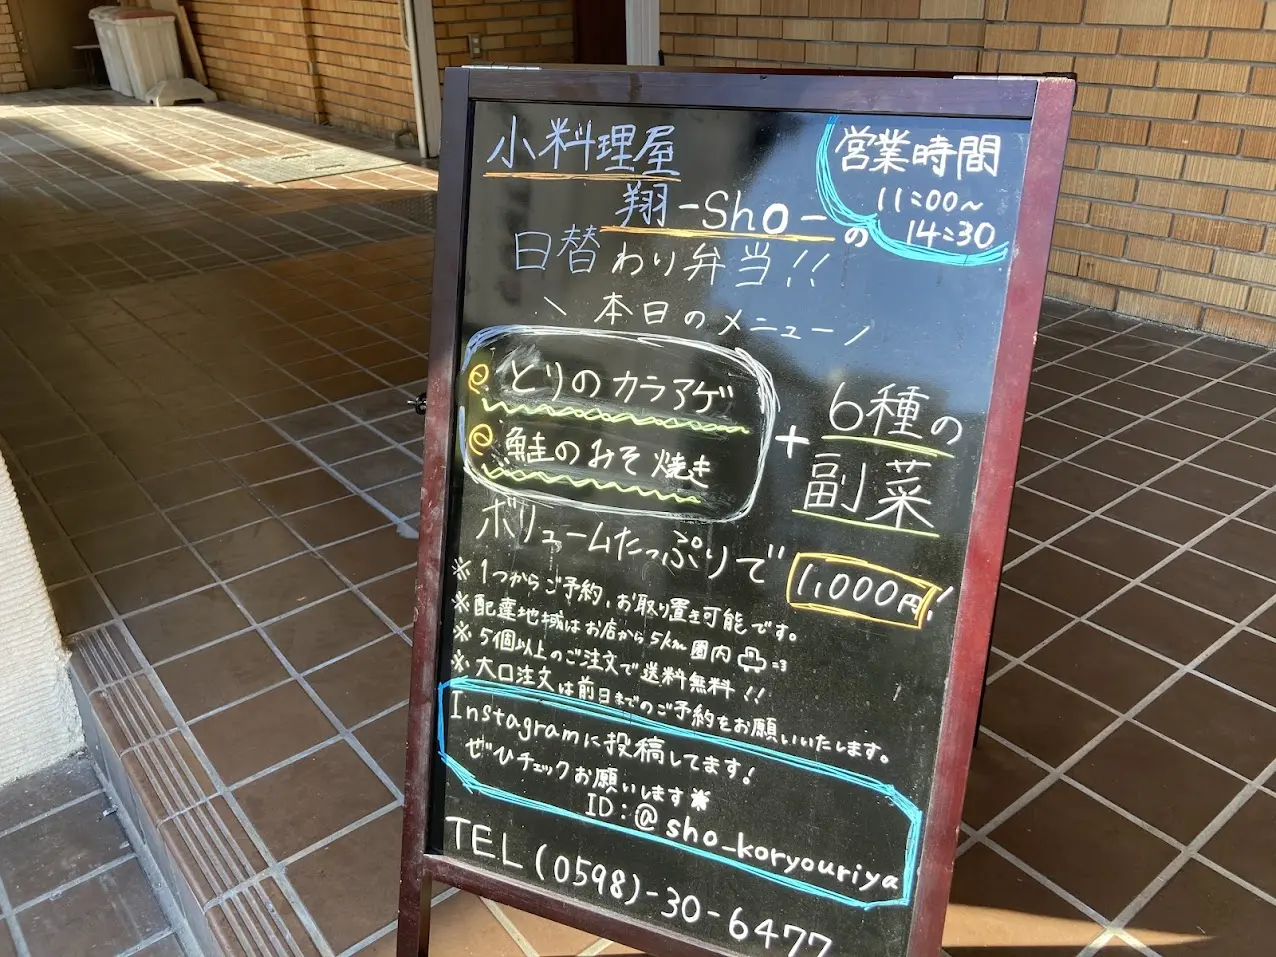 小料理屋
翔-Sho-の
日替わり弁当!!
営業時間
11:00~
14:30
\ 本日のメニュー /
とりのカラアゲ
鮭のみそ焼き
+
6種の
副菜
ボリュームたっぷりで 1,000円!
※1つからご予約、お取り置き可能です。
※配達地域はお店から5km圏内
※5個以上のご注文で送料無料!!
※大口注文は前日までのご予約をお願いいたします。
Instagramに投稿してます!
ぜひチェックお願いします
ID:@sho_koryouriya
TEL(0598)-30-6477